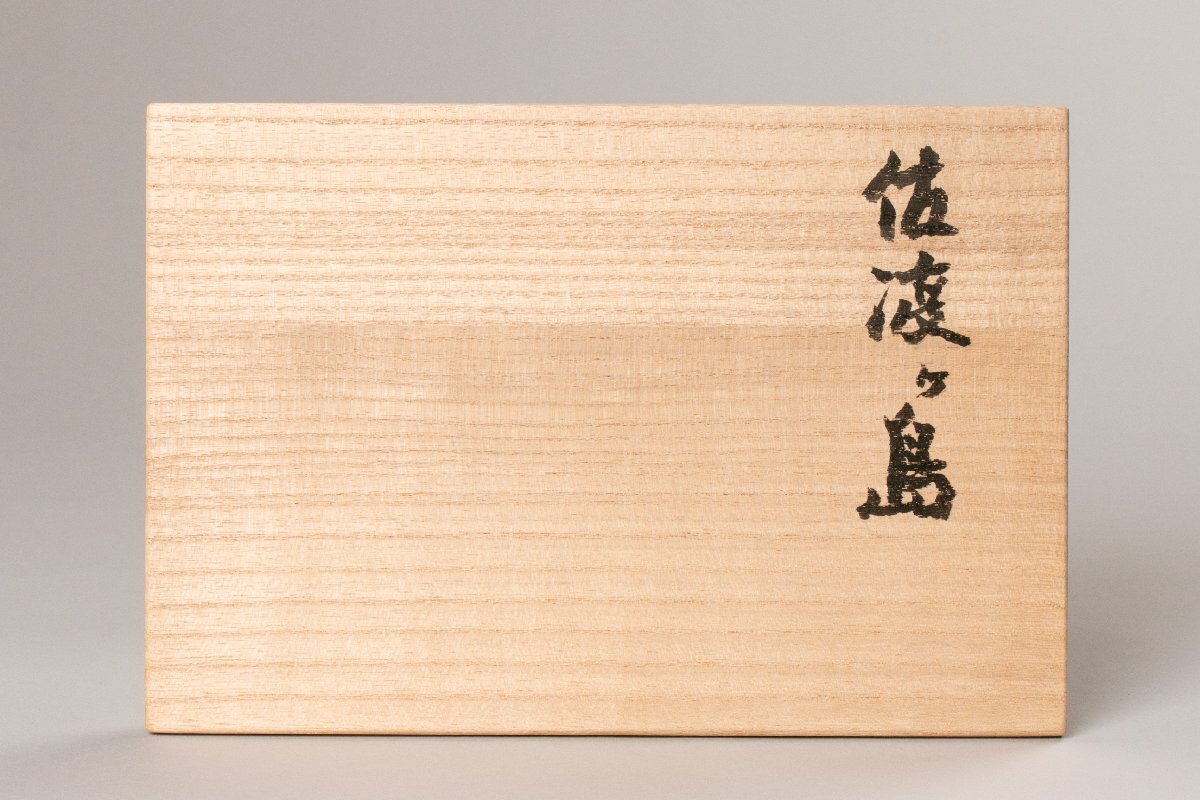 佐渡ヶ島